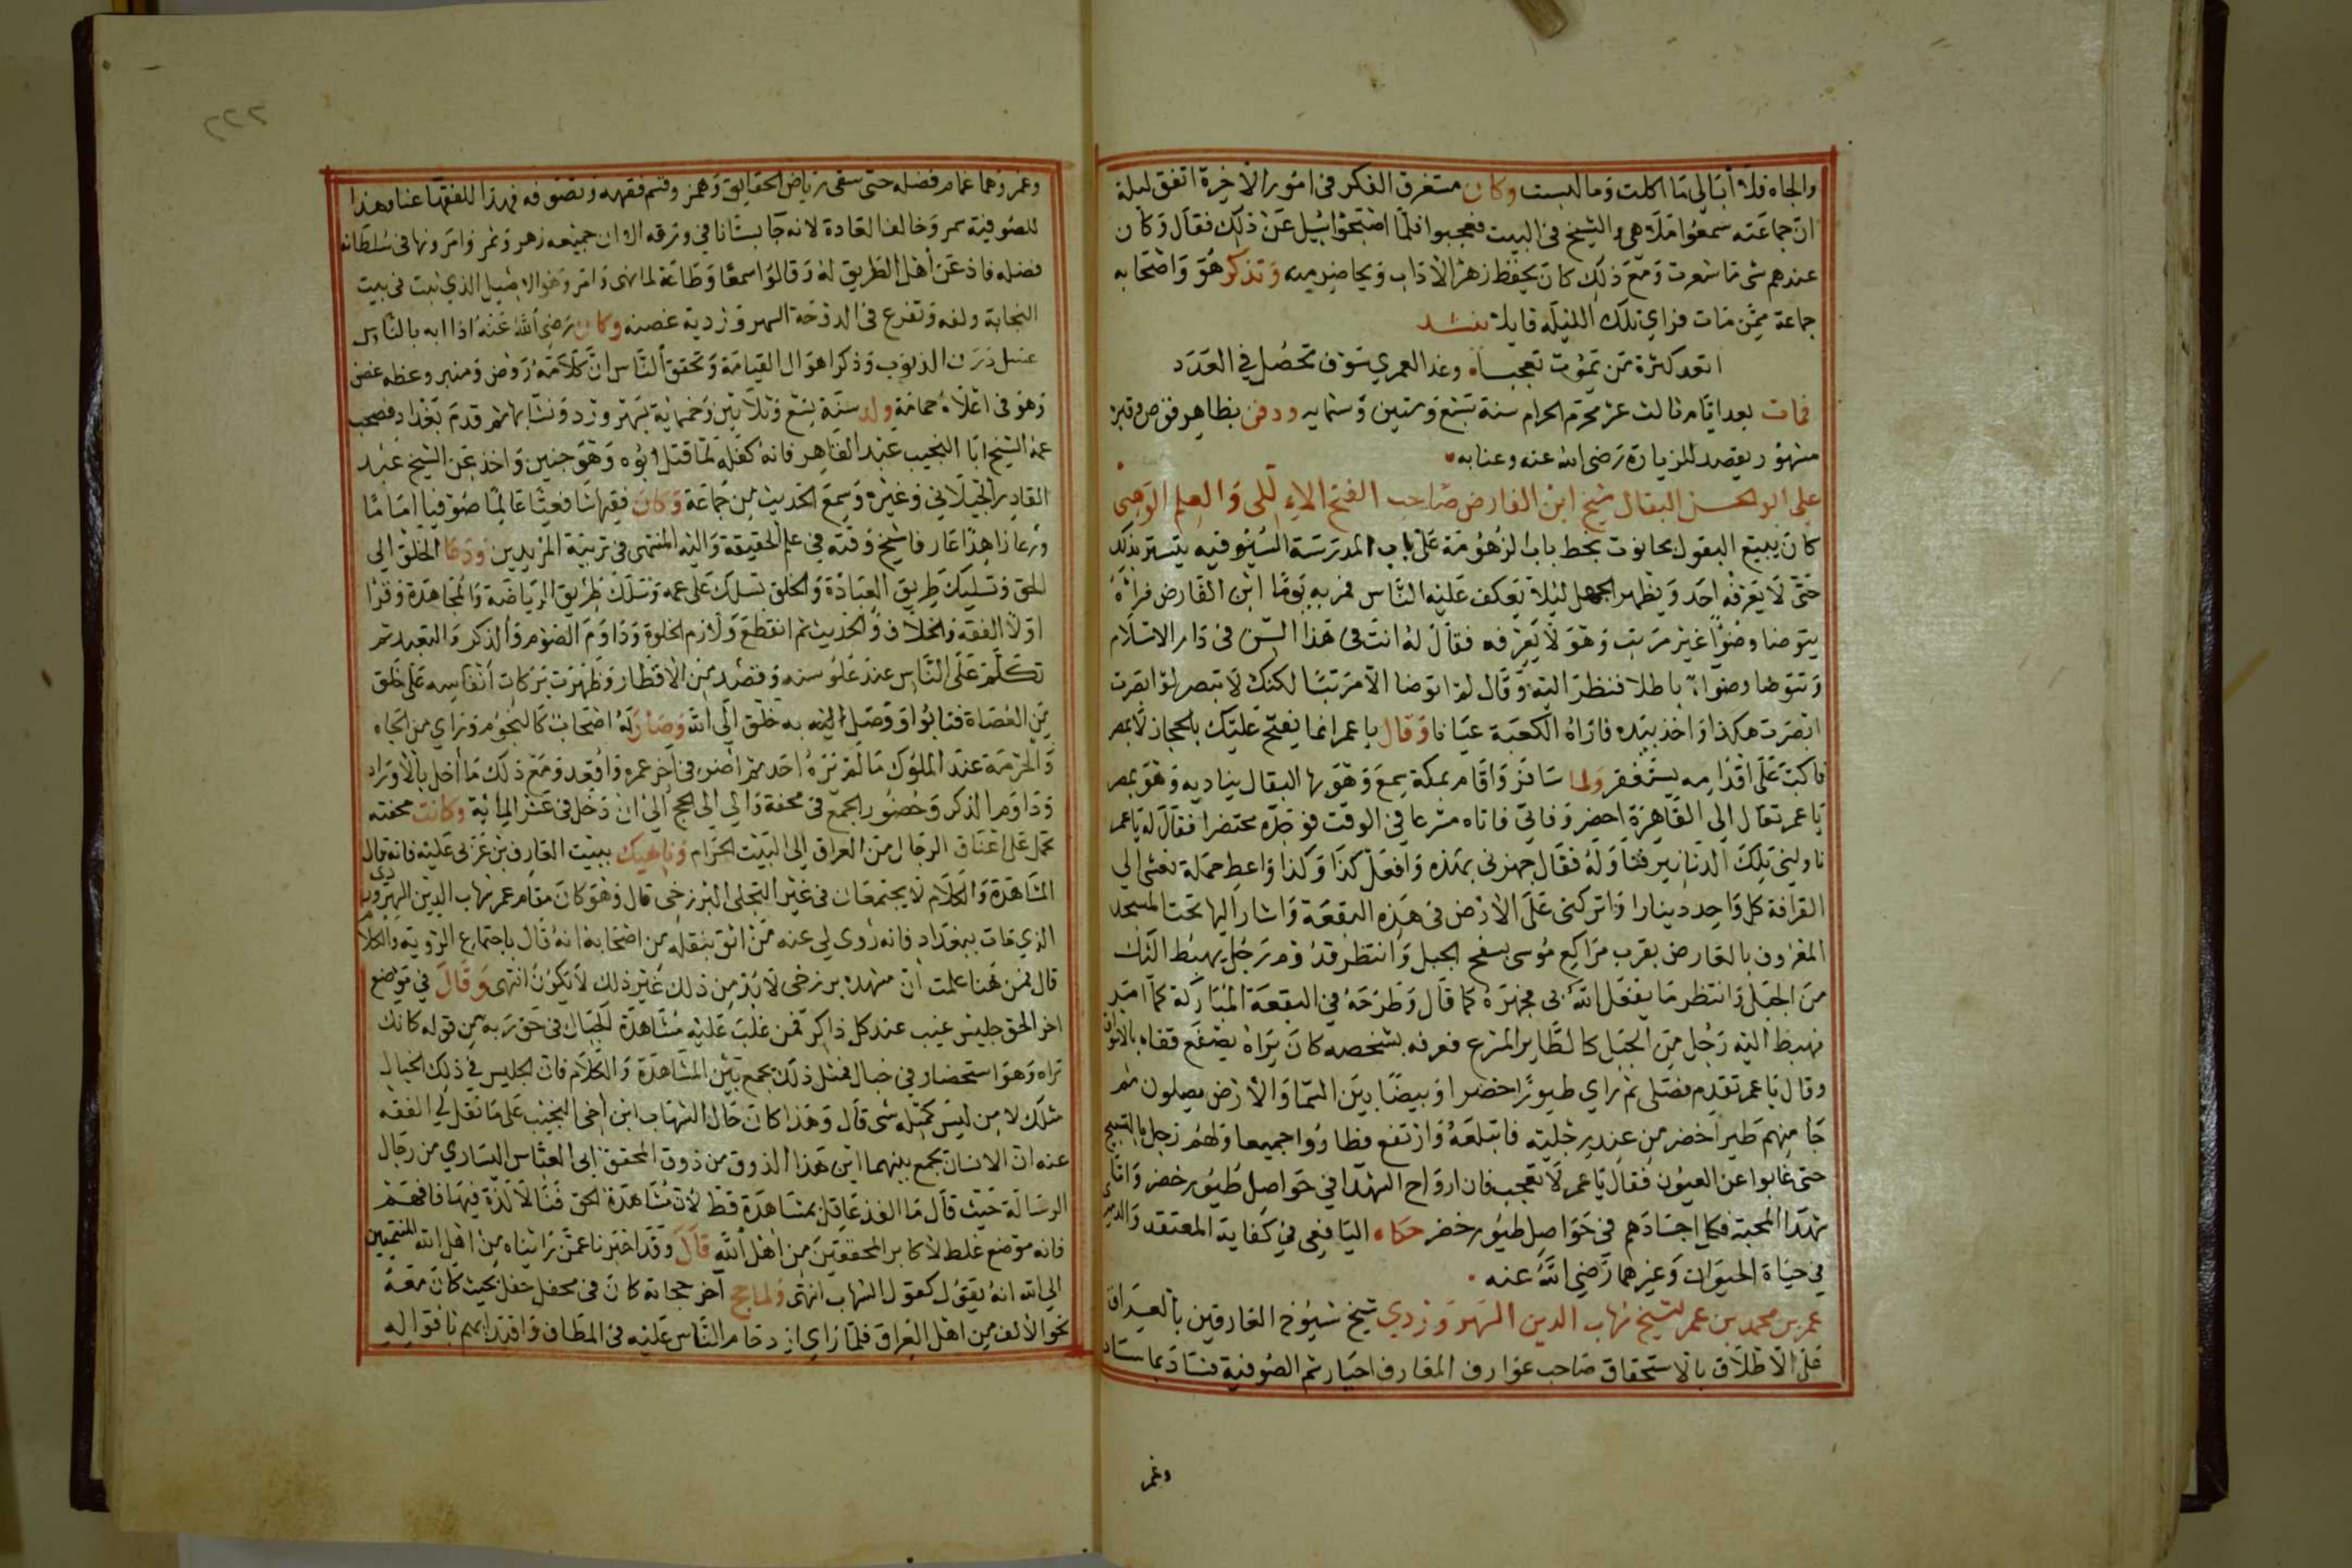 والجاه فلا أبالي ما اكلت وما لبست وكان مستغرق الفكر في امور الاخرة اتفق ليلة
ان جماعته سمعوا ملاهي والشيخ في البيت فعجبوا فلما اصبحوا سيل عن ذلك فقال وكان
عندهم شي ما شعرت ومع ذلك كان يحفظ زهر الاداب ويحاضر به وتذاكر هو واصحابه
جماعة ممن مات فراي تلك الليلة قايلا ينشد
اتعد كثرة من يموت تعجبا وغدا لعمري سوف تحصل في العدد
فمات بعد ايام ثالث عشر محرم الحرام سنة تسع وستين وستمايه ودفن بظاهر قوص وقبره
مشهور يقصد للزيارة رضي الله عنه وعنا به
علي ابو الحسن البقال شيخ ابن الفارض صاحب الفتح الالهي والعلم الوهبي
كان يبيع البقول بحانوت بخط باب الزهومة على باب المدرسة السيوفيه يتستر بذلك
حتى لا يعرفه احد ويظهر الجهل ليلا يعكف عليه الناس فمر به يوما ابن الفارض فراه
يتوضا وضوا غير مرتب وهو لا يعرفه فقال له انت في هذا السن في دار الاسلام
وتتوضا وضواء باطلا فنظر اليه وقال له اتوضا الا مرتبا لكنك لا تبصر لو ابصرت
ابصرت هكذا واخذ بيده فاراه الكعبة عيانا وقال يا عمر انما يفتح عليك بالحجاز لا بمصر
فاكب على اقدامه يستغفر ولما سافر واقام بمكة سمع وهو بها البقال يناديه وهو بمصر
يا عمر تعال الي القاهرة احضر وفاتي فاتاه مسرعا في الوقت فوجده محتضرا فقال له يا عمر
ناولني تلك الدنانير فناوله فقال جهزني بهذه وافعل كذا وكذا واعط حملة نعشي الي
القرافة كل واحد دينارا واتركني على الارض في هذه البقعة واشار اليها تحت المسجد
المعروف بالعارض بقرب مراكع موسى بسفح الجبل وانتظر قدوم رجل يهبط اليك
من الجبل وانتظر ما يفعل الله بي فجهزه كما قال وطرحه في البقعة المباركة كما امر
فهبط اليه رجل من الجبل كالطاير المسرع فعرفه بشخصه كان يراه يصفع قفاه بالاسواق
وقال يا عمر تقدم فصلى ثم راي طيورا خضرا وبيضا بين السما والارض يصلون ثم
جا منهم طير اخضر من عند رجليه فابتلعه وارتفع فطاروا جميعا ولهم زجل بالتسبيح
حتى غابوا عن العيون فقال يا عمر لا تعجب فان ارواح الشهدا في حواصل طيور خضر واما
شهدا المحبة فكما اجسادهم في حواصل طيور خضر حكاه اليافعي في كفاية المعتقد والدميري
في حياة الحيوان وغيرهما رضي الله عنه
عمر بن محمد بن عمر الشيخ شهاب الدين السهروردي شيخ شيوخ العارفين بالعراق
على الاطلاق بالاستحقاق صاحب عوارف المعارف اختار ثم الصوفية فساد بما ساد
وغمر
٢٢٢
وغمر وهما غمام فضله حتى سقى رياض الحقايق وهمر وقسم فقهه وتصوفه فهذا للفقها عنا وهذا
للصوفية سمر وخالف العادة لانه جا بستانا في ورقه الا ان جميعه زهر وثمر وامر ونها في سلطانه
فضله فاذعن اهل الطريق له وقالوا سمعا وطاعة لما نهى وامر وهو الاصيل الذي نبت في بيت
النجابة ولفه وتفرع في الدوحة السهروردية غصنه وكان رضي الله عنه اذا ابه بالناس
غسل درن الذنوب وذكر اهوال القيامة وتحقق الناس ان كلامه روض ومنبر وعظه غصن
وهو في اعلاه حمامة ولد سنة تسع وثلاثين وخمسماية بسهرورد ونشا بها ثم قدم بغداد فصحب
عمه الشيخ ابا النجيب عبد القاهر فانه كفله لما قتل ابوه وهو جنين واخذ عن الشيخ عبد
القادر الجيلاني وغيره وسمع الحديث من جماعة وكان فقيها شافعيا عالما صوفيا اماما
ورعا زاهدا عارفا شيخ وقته في علم الحقيقة واليه المنتهى في تربية المريدين ودعا الخلق الي
الحق وتسليك طريق العبادة والخلق تسلك على عمه وسلك طريق الرياضة والمجاهدة وقرا
اولا الفقه والخلاف والحديث ثم انقطع ولازم الخلوة وداوم الصوم والذكر والتعبد ثم
تكلم على الناس عند علو سنه وقصد من الاقطار وظهرت بركات انفاسه على خلق
من العصاة فتابوا ووصل اليه به خلق الى الله وصار له اصحاب كالنجوم وراي من الجاه
والحرمة عند الملوك ما لم يره احد ثم اضر في آخر عمره واقعد ومع ذلك ما أخل بالاوراد
وداوم الذكر وحضور الجمع في محفة والي الي الحج الى ان دخل في عشر المأية وكانت محفته
تحمل على اعناق الرجال من العراق الى البيت الحرام وناهيك ببيت العارف بن عربي عليه فانه قال
المشاهدة والكلام لا يجتمعان في غير التجلى البرزخي قال وهو كان مقام عمر شهاب الدين السهروردي
الذي مات ببغداد فانه روى لي عنه من اثق بنقله من اصحابه انه قال باجتماع الروية والكلام
قال فمن هنا علمت ان مشهده برزخى لا بد من ذلك غير ذلك لا يكون انتهى وقال في موضع
اخر الحق جليس غيب عند كل ذاكر فمن غلب عليه مشاهدة الخيال في حق ربه من قوله كانك
تراه وهو استحضار في خيال فمثل ذلك يجمع بين المشاهدة والكلام فان الجليس في ذلك الخيال
مثلك لا من ليس كمثله شى قال وهذا كان حال الشهاب ابن اخى النجيب على ما نقل لي الفقه
عنه ان الانسان يجمع بينهما اين هذا الذوق من ذوق المحقق ابى العباس السياري من رجال
الرسالة حيث قال ما التذ عاقل بمشاهدة قط لان مشاهدة الحق فنا لا لذة فيها فافهم
فانه موضع غلط لاكابر المحققين من اهل الله قال وقد اخبرنا عمن رايناه من اهل الله المنتمين
الي الله انه يقول كقول الشهاب انتهى ولما حج آخر حجاته كان في محفل حفل بحيث كان معه
نحو الالف من اهل العراق فلما راي ازدحام الناس عليه في المطاف واقتداهم باقواله